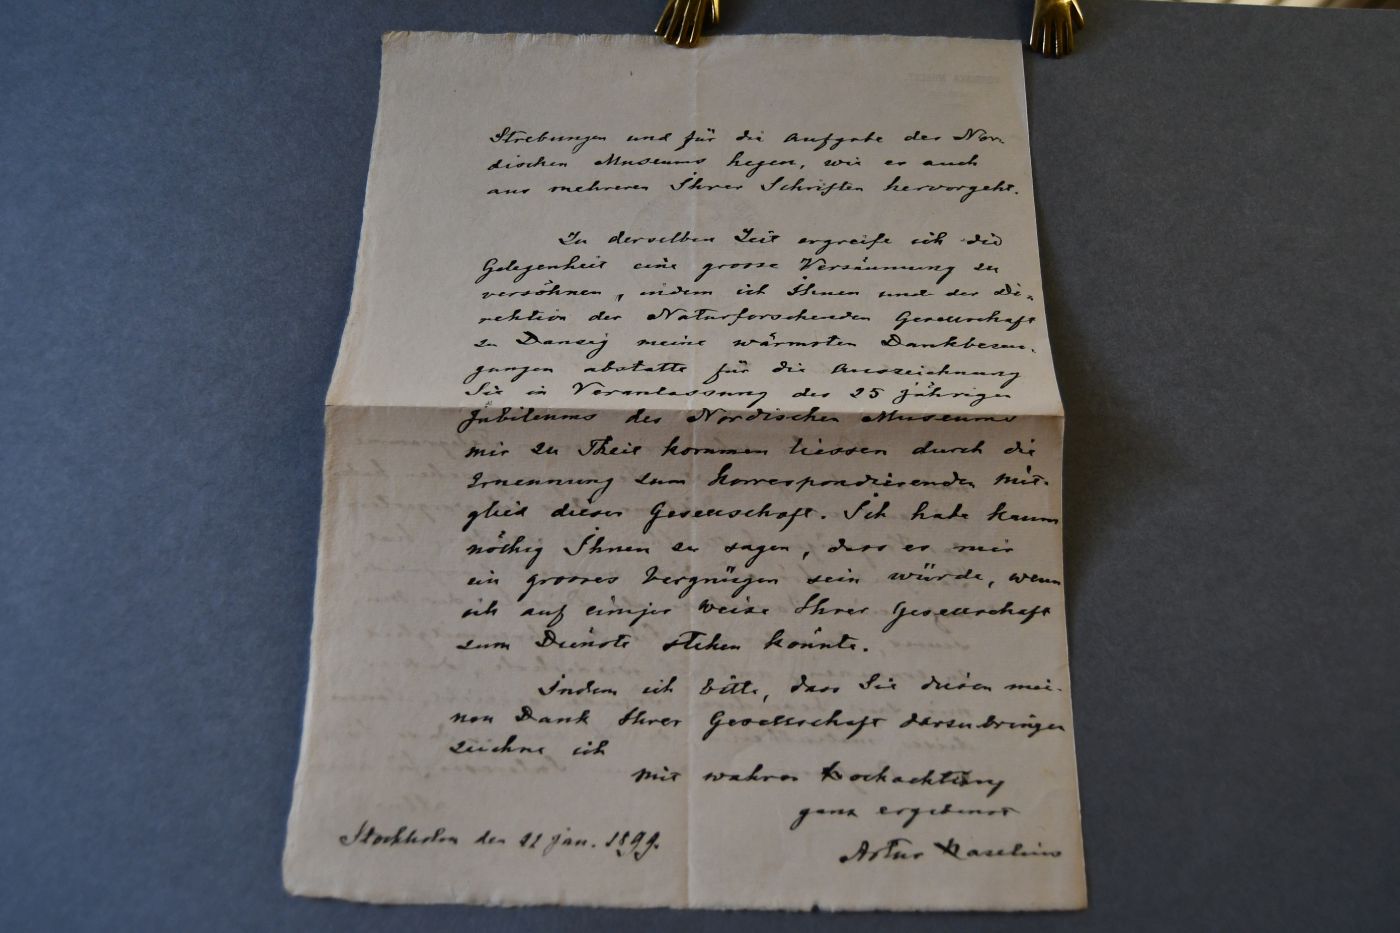 Strebungen und für die Aufgabe des Nor-
dischen Museums hegen, wie es auch
aus mehreren Ihrer Schriften hervorgeht.
Zu derselben Zeit ergreife ich die
Gelegenheit eine grosse Versäumung zu
versöhnen, indem ich Ihnen und der Di-
rektion der Naturforschenden Gesellschaft
zu Danzig meine wärmsten Dankbezeu-
gungen abstatte für die Auszeichnung
Sie in Veranlassung des 25 jährigen
Jubileums des Nordischen Museums
mir zu Theil kommen liessen durch die
Ernennung zum korrespondierenden Mit-
glied dieser Gesellschaft. Ich habe kaum
nöthig Ihnen zu sagen, dass es mir
ein grosses Vergnügen sein würde, wenn
ich auf einiger Weise Ihrer Gesellschaft
zum Dienste stehen könnte.
Indem ich bitte, dass Sie diesen mei-
nen Dank Ihrer Gesellschaft darzubringen
zeichne ich
mit wahrer Hochachtung
ganz ergebenst
Stockholm den 21 jan. 1899.
Artur Hazelius